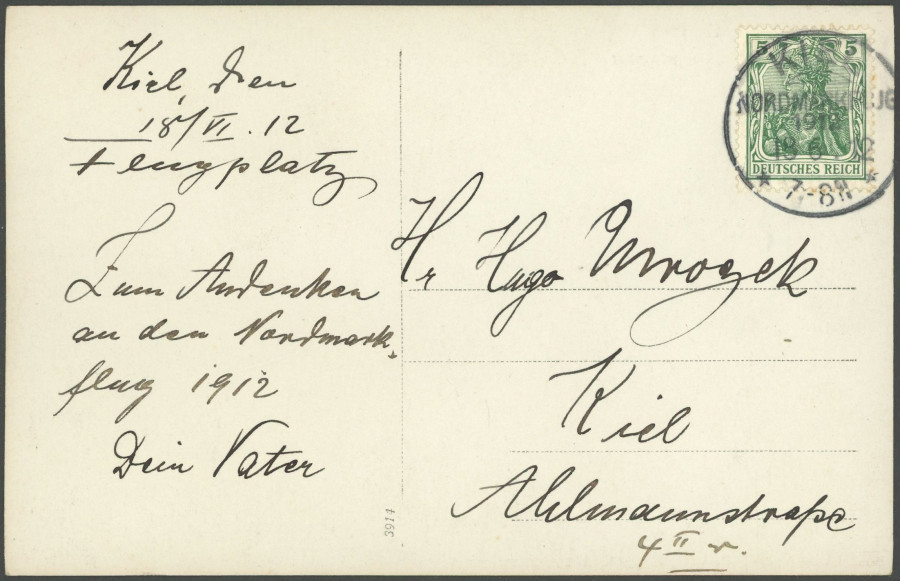 Kiel, den
18/VI. 12
Flugplatz
Zum Andenken
an den Nordmark-
flug 1912
Dein Vater
Hr Hugo Mrozek
Kiel
Ahlmannstraße
4 II r.
3914
5 5
DEUTSCHES REICH
KIEL
NORDMARKFLUG
1912
18 6 12
* 7-8N *